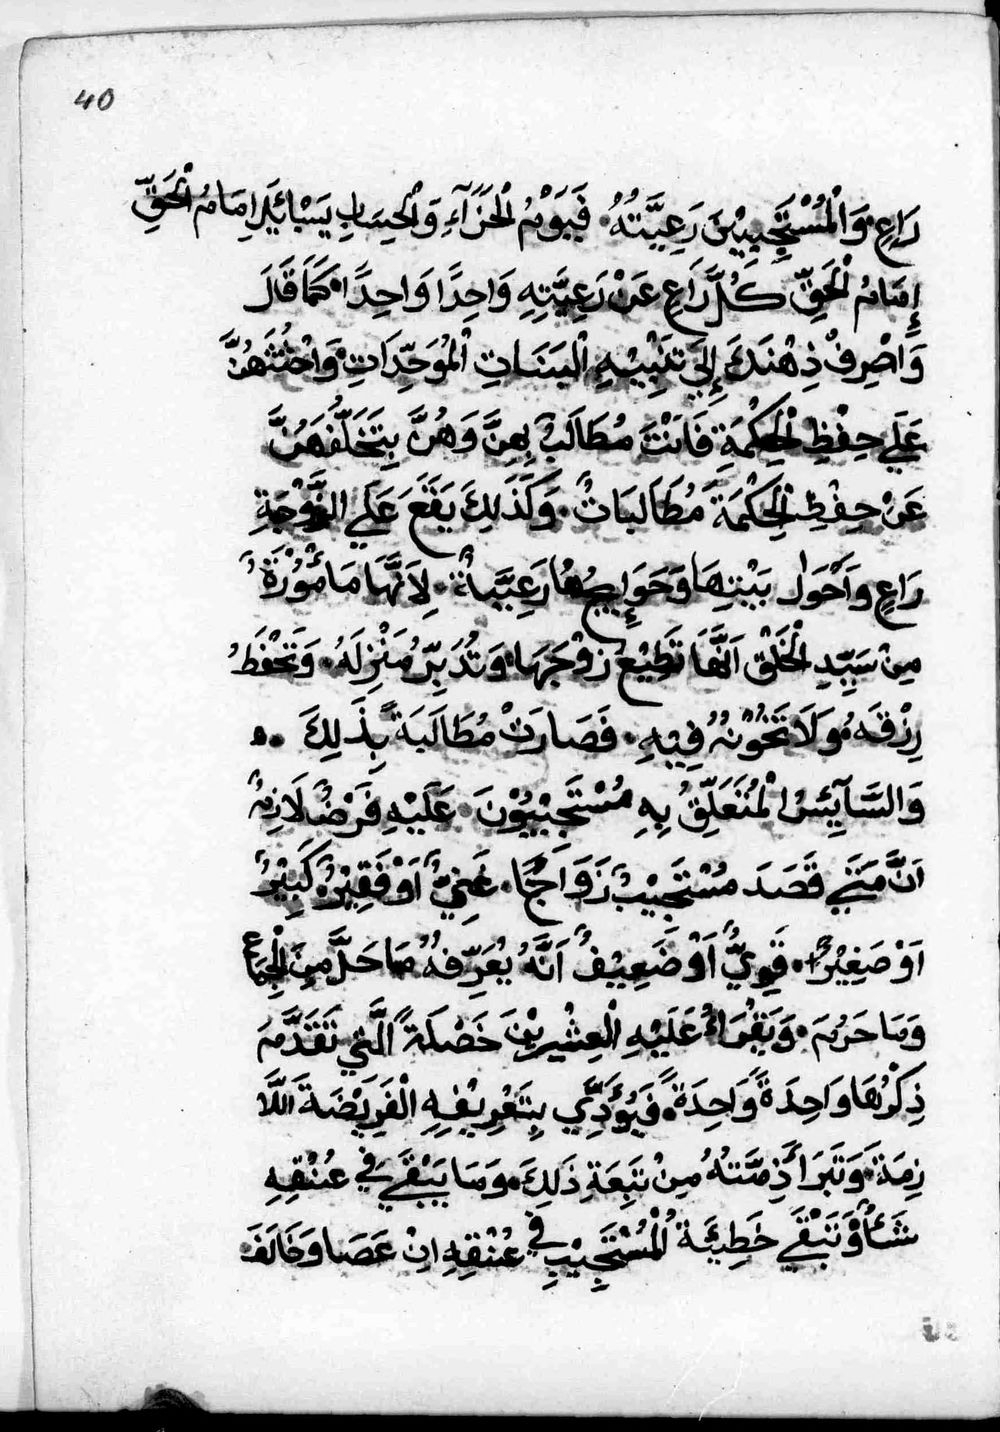 40
رَاعٍ وَالْمُسْتَجِيبِيْنَ رَعِيَّتُهُ. فَيَوْمُ الْجَزَآءِ وَالْحِسَابِ يَسْائَلِ اِمَامُ الْحَقِّ
إِمَامُ الْحَقِّ كُلَّ رَاعٍ عَنْ رَعِيَّتِهِ وَاحِدًا وَاحِدًا كَمَا قَالَ
وَاصْرِفْ ذِهْنَكَ إِلَي تَنْبِيْهِ الْبَنَاتِ الْمُوَحِّدَاتِ وَاحْثُثْهُنَّ
عَلَي حِفْظِ الْحِكْمَةِ فَاَنْتَ مُطَالَبٌ بِهِنَّ وَهُنَّ بِتَخَلُّفِهُنَّ
عَنْ حِفْظِ الْحِكْمَةِ مُطَالَبَاتٌ. وَكَذَلِكَ يَقَعَ عَلَي الزَّوْجَةِ
رَاعٍ وَاَحْوَال بَيْتِهَا وَحَوَايِجُهَا رَعِيَّةٌ. لِاَنَّهَا مَأْمُوْرَةٌ
مِنْ سَيِّدِ الْخَلْقْ اَنَّهَا تَطِيْعُ زَوْجَهَا وَتُدَبِّرُ مَنْزِلَهُ. وَتَحْفَظُ
رِزْقَهُ وَلَا تَخُوْنُهُ فِيْهِ. فَصَارَتْ مُطَالَبَةً بِذَلِكَ .ه
وَالسَّآيِسُ الْمُتَعَلِّقْ بِهِ مُسْتَجِيْبِيُوْنَ عَلَيْهِ فَرْضٌ لَازِمٌ
اَنَّ مَتَي قَصَدَ مُسْتَجِيْبٌ زَوَاجًا. غَنِيٌّ اَوْ فَقِيْرٌ كَبِيْرٌ
اَوْ صَغِيْرٌ. قَوِيٌّ اَوْ ضَعِيْفٌ اَنَّهُ يُعَرِّفُهُ مَا حَلَّ مِنَ الْجِمَاع
وَمَا حَرُمَ. وَيَقْرَاءُ عَلَيْهِ الْعِشْرِيْنَ خَصْلَةً الَّتِي تَقَدَّمَ
ذِكْرُهَا وَاحِدَةً وَاحِدَةً. فَيُؤَدِّي بِتَعْرِيْفِهِ الْفَرِيْضَةَ اللَّا
زِمَةَ. وَتَبْرَأ ذِمَّتَهُ مِنْ تَبِعَةِ ذَلِكَ. وَمَا يَبْقَي فِي عُنْقِهِ
شَأْ وَتَبْقَي خَطِيْئَةُ الْمُسْتَجِيْبِ فِي عُنْقِهِ اِنْ عَصَا وَخَالَفَ